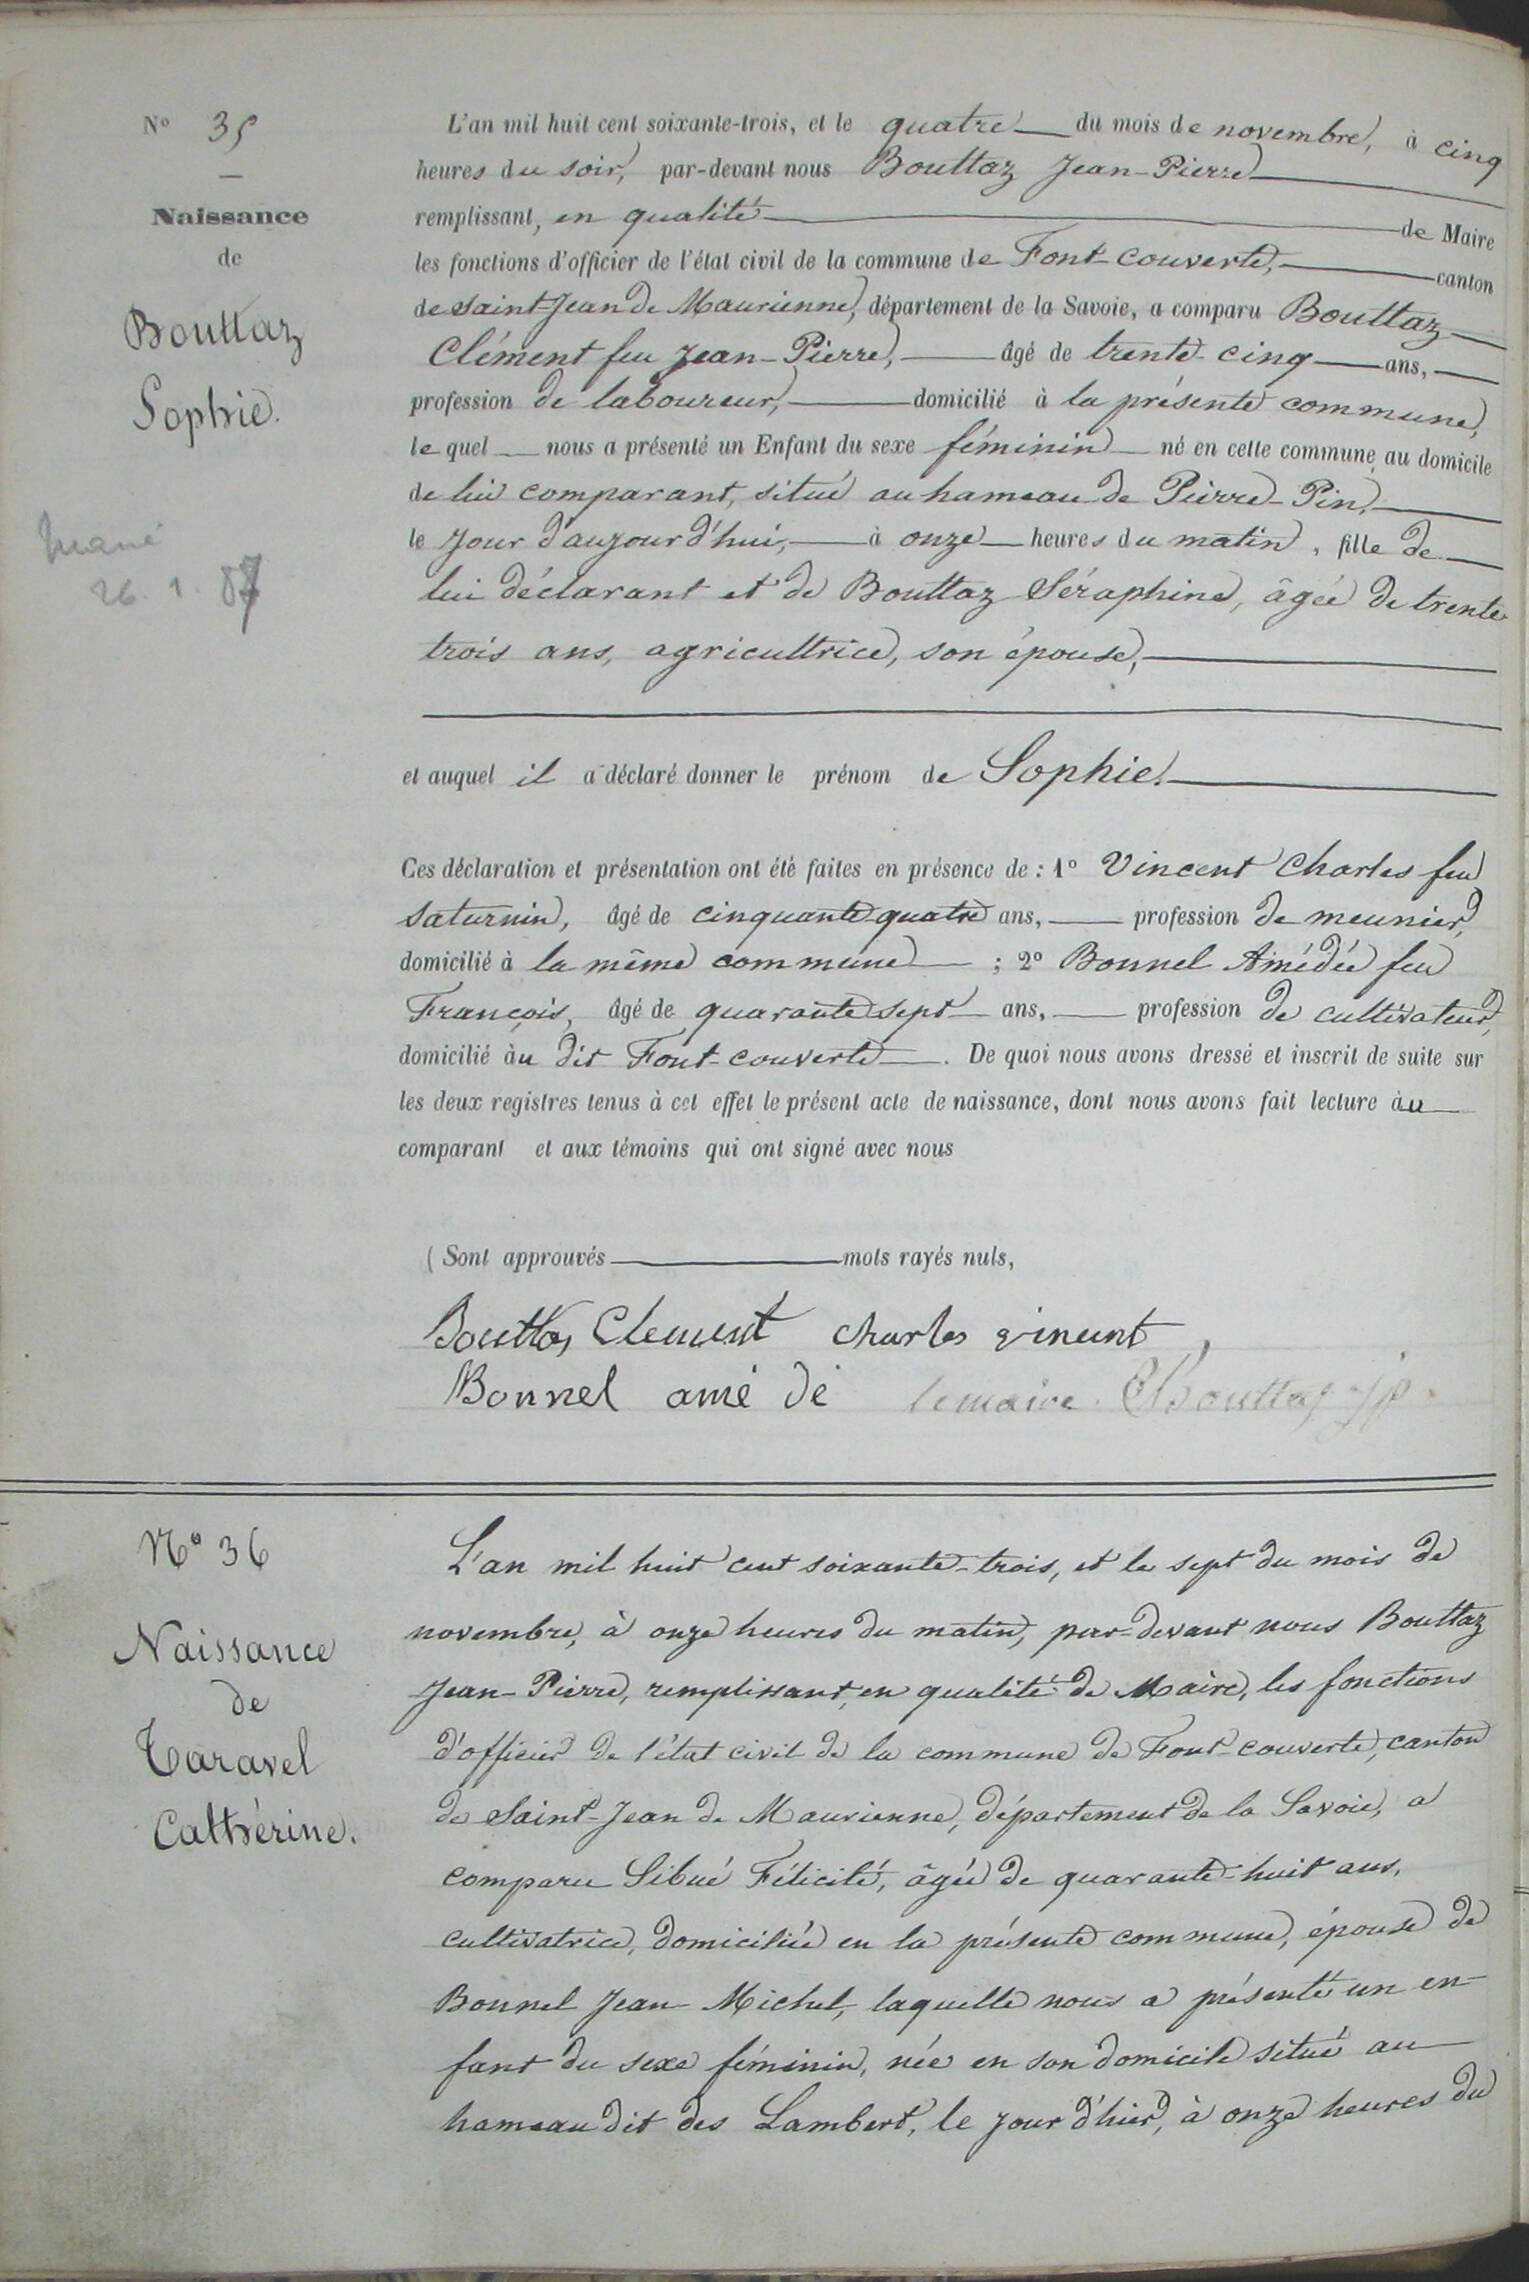 N° 35
Naissance
de
Bouttaz
Sophie.
marié
26. 1. 87
L'an mil huit cent soixante-trois, et le quatre du mois de novembre, à cinq
heures du soir, par-devant nous Bouttaz Jean-Pierre
remplissant, en qualité de Maire
les fonctions d'officier de l'état civil de la commune de Font-couverte, canton
de Saint-Jean de Maurienne, département de la Savoie, a comparu Bouttaz
Clément feu Jean-Pierre, âgé de trente-cinq ans,
profession de laboureur, domicilié à la présente commune,
le quel nous a présenté un Enfant du sexe féminin né en cette commune au domicile
de lui comparant, situé au hameau de Pierre-Pin,
le jour d'aujourd'hui, à onze heures du matin, fille de
lui déclarant et de Bouttaz Séraphine, âgée de trente
trois ans, agricultrice, son épouse,
et auquel il a déclaré donner le prénom de Sophie.
Ces déclaration et présentation ont été faites en présence de : 1° Vincent Charles feu
Saturnin, âgé de cinquante-quatre ans, profession de meunier,
domicilié à la même commune ; 2° Bonnel Amédée feu
François, âgé de quarante sept ans, profession de cultivateur,
domicilié àu dit Font-couverte. De quoi nous avons dressé et inscrit de suite sur
les deux registres tenus à cet effet le présent acte de naissance, dont nous avons fait lecture àu
comparant et aux témoins qui ont signé avec nous
(Sont approuvés mots rayés nuls,
Bouttaz Clement charles vincent
Bonnel amé dé le maire Bouttaz jp.
N° 36
Naissance
de
Taravel
Cathérine.
L'an mil huit cent soixante-trois, et le sept du mois de
novembre, à onze heures du matin, par-devant nous Bouttaz
Jean-Pierre, remplissant, en qualité de Maire, les fonctions
d'officier de l'état civil de la commune de Font-couverte, canton
de Saint-Jean de Maurienne, département de la Savoie, a
comparu Sibué Félicité, âgée de quarante-huit ans,
cultivatrice, domiciliée en la présente commune, épouse de
Bonnel Jean Michel, laquelle nous a présenté un en-
fant du sexe féminin, née en son domicile situé au
hameau dit des Lambert, le jour d'hier, à onze heures du